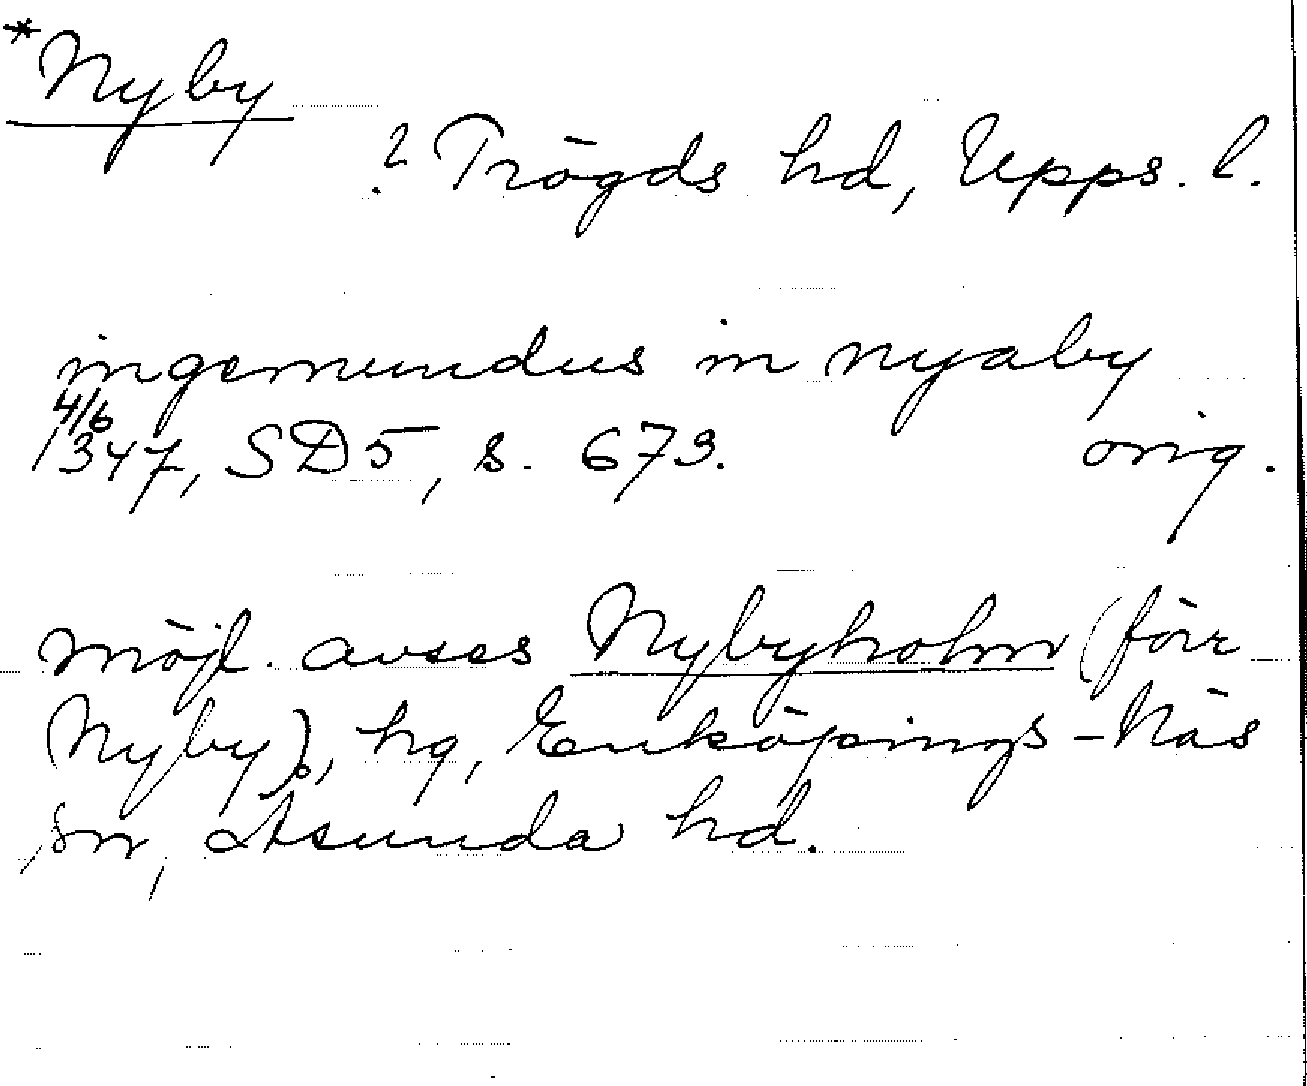 *Nyby
? Trögds hd, Upps. l.
ingemundus in nyaby
4/6
1347, SD5, s. 673. orig.
möjl. avses Nybyholm (förr
Nyby), hg, Enköpings-Näs
sn, Åsunda hd.